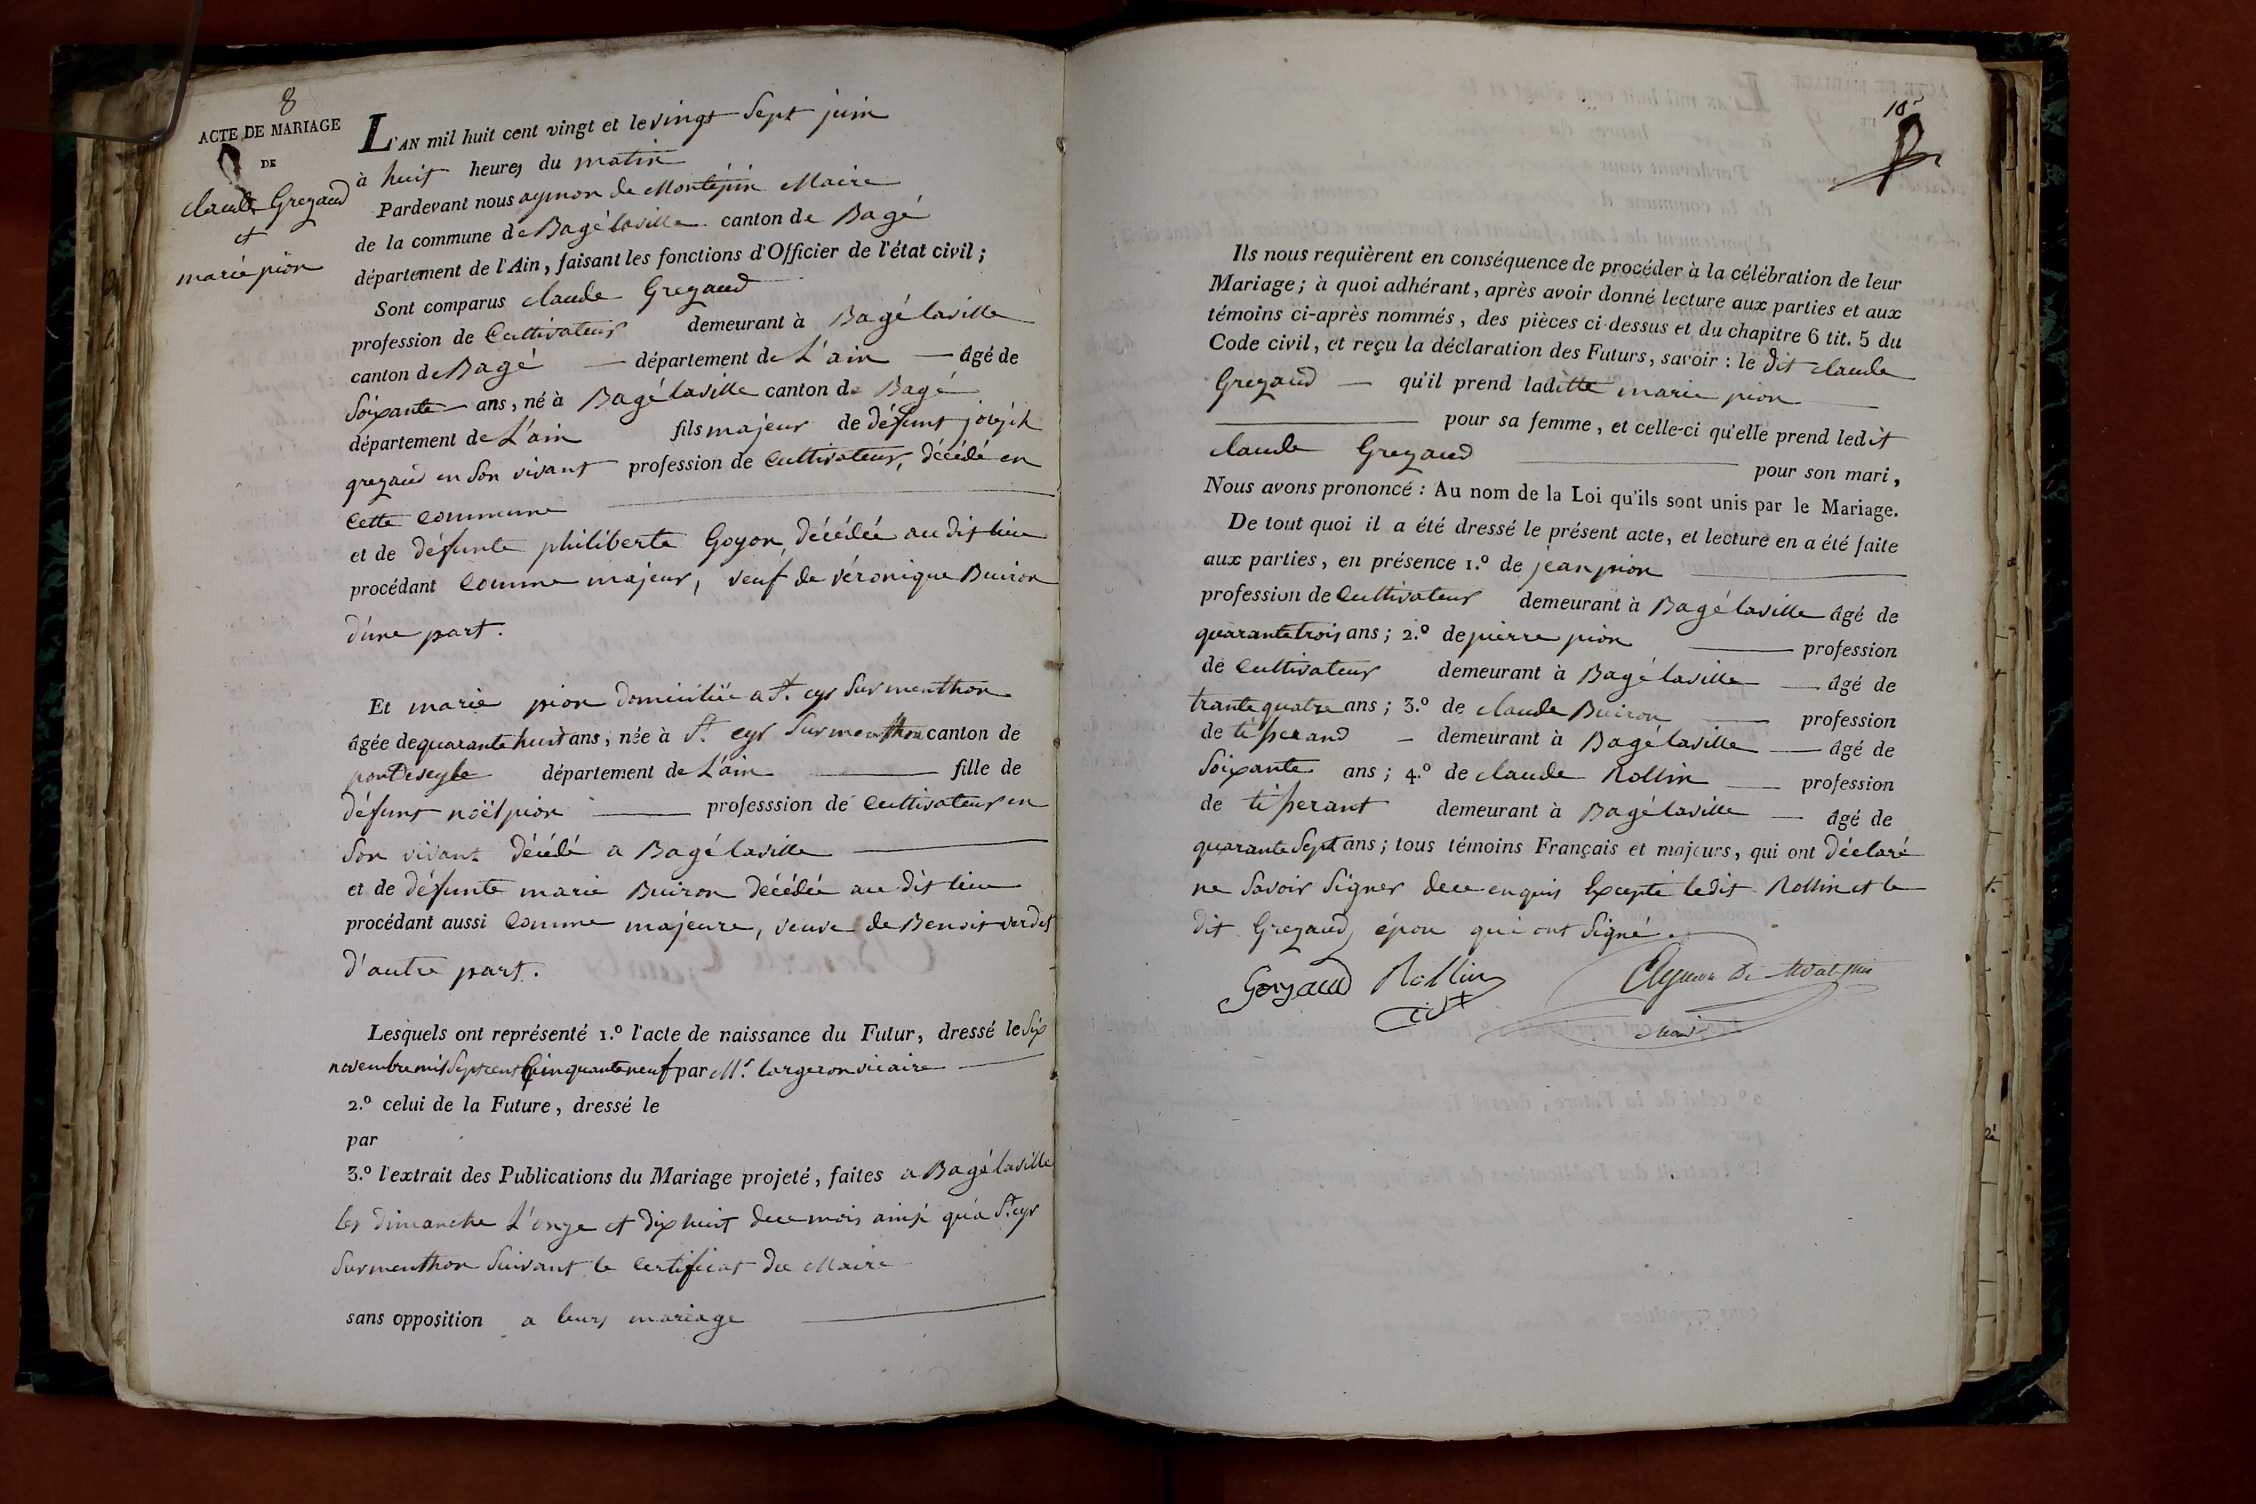 8
ACTE DE MARIAGE
DE
claude Grezaud
et
marie pion
L'AN mil huit cent vingt et le vingt Sept juin
à huit heures du matin
Pardevant nous aymon de Montépin Maire
de la commune de Bagé laville canton de Bagé
département de l'Ain, faisant les fonctions d'Officier de l'état civil;
Sont comparus claude Grezaud
profession de Cultivateur demeurant à Bagé laville
canton de Bagé — département de L'ain — âgé de
Soixante ans, né à Bagé laville canton de Bagé
département de L'ain fils majeur de défunt joséph
grezaud en Son vivant profession de Cultivateur, décédé en
Cette Commune
et de défunte philiberte Goyon, décédée au dit lieu
procédant Comme majeur, veuf de véronique Buiron
d'une part.
Et marie pion domiciliée a St. cyr Sur menthon
âgée de quarante huit ans, née à St. cyr Sur menthon canton de
pont deveyle département de L'ain fille de
défunt noël pion professsion de Cultivateur en
Son vivant décédé a Bagé laville
et de défunte marie Buiron décédée au dit lieu
procédant aussi Comme majeure, veuve de Benoit verdet
d'autre part.
Lesquels ont représenté 1.º l'acte de naissance du Futur, dressé le Six
novembre mil Sept cent Cinquante neuf par Mr. largeron vicaire
2.º celui de la Future, dressé le
par
3.º l'extrait des Publications du Mariage projeté, faites a Bagé laville
les dimanche L'onze et dix huit de ce mois ainsi qu'a St. cyr
Sur menthon Suivant le Certificat du Maire
sans opposition a leurs mariage
10
Ils nous requièrent en conséquence de procéder à la célébration de leur
Mariage; à quoi adhérant, après avoir donné lecture aux parties et aux
témoins ci-après nommés, des pièces ci-dessus et du chapitre 6 tit. 5 du
Code civil, et reçu la déclaration des Futurs, savoir : le dit claude
Grezaud — qu'il prend ladite marie pion
pour sa femme, et celle-ci qu'elle prend ledit
claude Grezaud pour son mari,
Nous avons prononcé : Au nom de la Loi qu'ils sont unis par le Mariage.
De tout quoi il a été dressé le présent acte, et lecture en a été faite
aux parties, en présence 1.º de jean pion
profession de Cultivateur demeurant à Bagé laville âgé de
quarante trois ans; 2.º de pierre pion profession
de Cultivateur demeurant à Bagé laville — âgé de
trante quatre ans; 3.º de claude Buiron profession
de tisserand — demeurant à Bagé laville — âgé de
Soixante ans; 4.º de claude Rollin profession
de tisserant demeurant à Bagé laville — âgé de
quarante Sept ans; tous témoins Français et majeurs, qui ont déclaré
ne Savoir Signer de ce enquis Excepté ledit Rollin et le
dit Grezaud, épou qui ont Signé.
Rollin
Aymon De Montepin
Maire